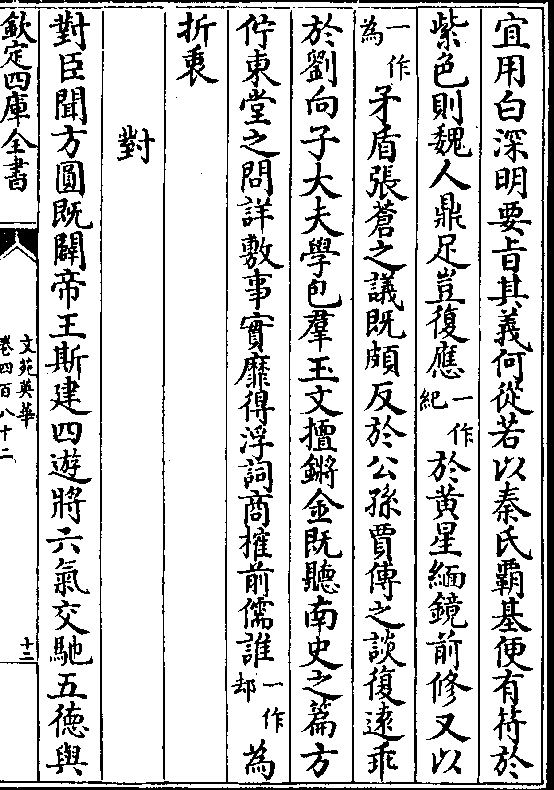 宜用白深明要旨其義何從若以秦氏霸基便有符於
紫色則魏人鼎足豈復應一作紀於黃星緬鏡前修又以
一作為矛盾張蒼之議既頗反於公孫賈傅之談復遠乖
於劉向子大夫學包羣玉文擅鏘金既聽南史之篇方
佇東堂之問詳敷事實靡得浮詞商搉前儒誰一作却為
折衷
對
對臣聞方圓既闢帝王斯建四遊將六氣交馳五德與
欽定四庫全書
文苑英華
卷四百八十二
十二